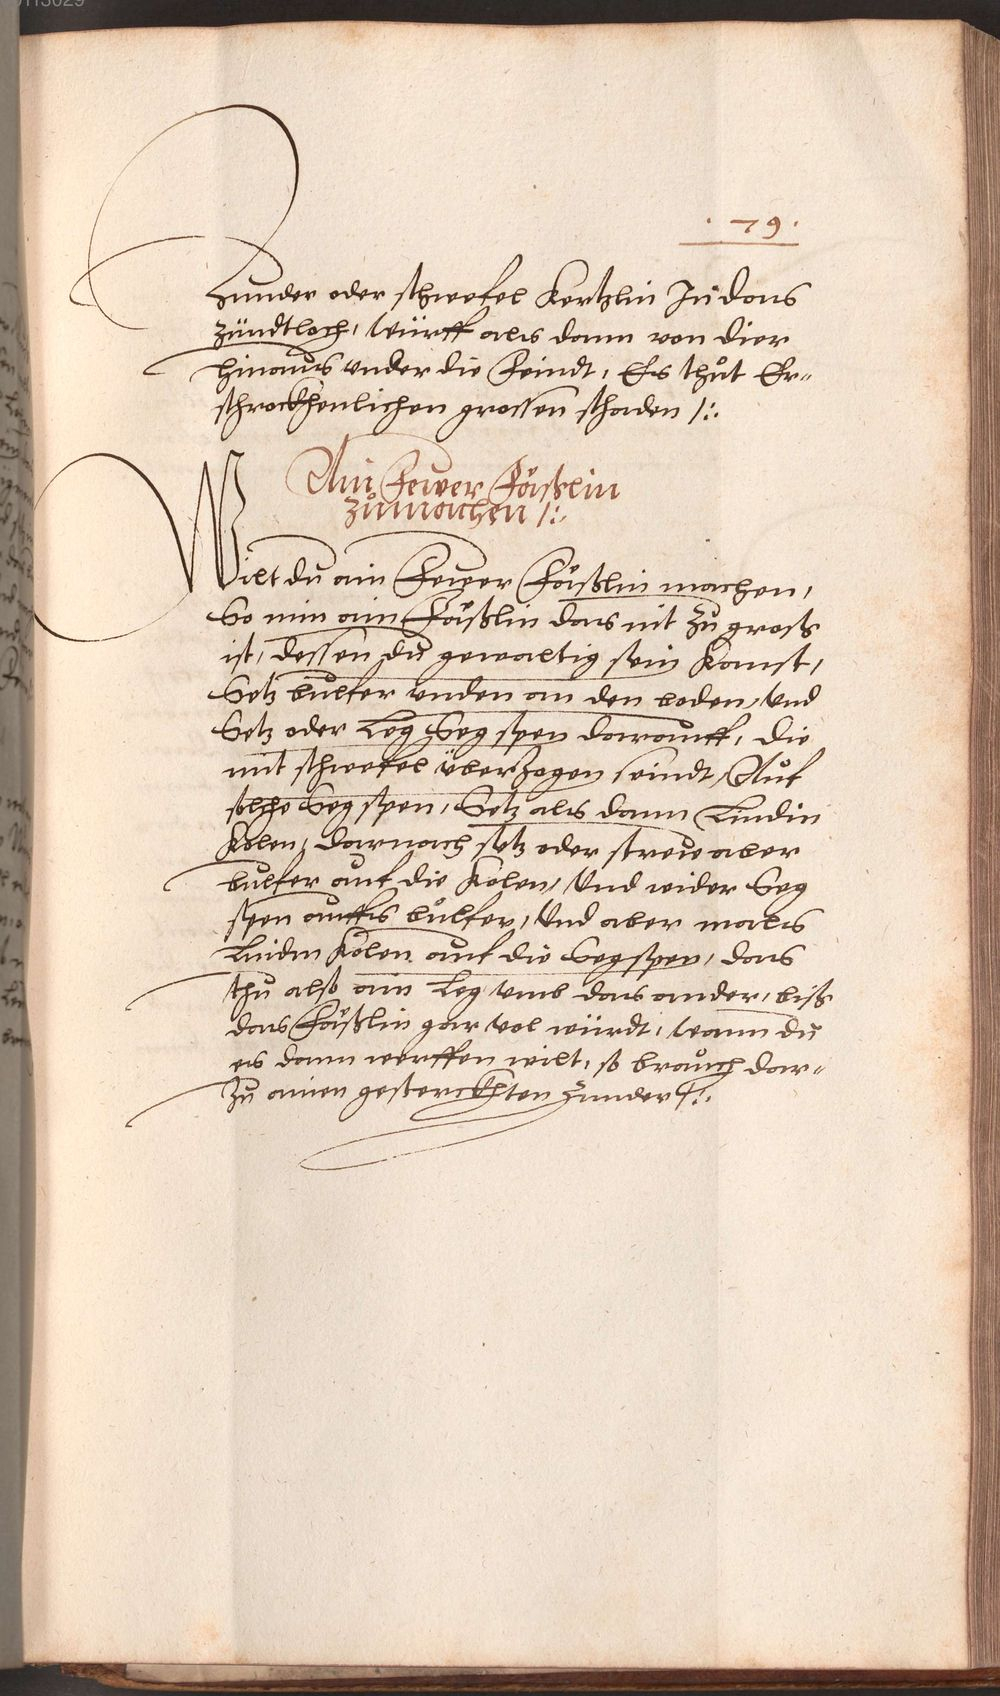 · 79 ·
Zunder oder schwefel Kertzlin In das
zündtloch, würff als dann von dier
hinaus vnder die Feindt, Es thůt Er-
schrockhenlichen grossen schaden /:.
Ain Fewer Fäßlin
zůmachen /:.
Wilt du ain Fewer Fäßlin machen,
So nim ain Fäßlin das nit zů groß
ist, dessen du gewaltig sein Kanst,
Setz bulfer vnden an den boden, Vnd
Setz oder Leg Seg spen darauff, die
mit schwefel überzogen seindt, Auf
solche Seg spen, Setz als dann Lindin
Kolen, darnach setz oder strew aber
bulfer auf die Kolen, Vnd wider Seg
spen auffs bůlfer, Vnd aber mals
Lindin Kolen auf die Segspen, das
thu alß ain Leg vmb das ander, biß
das Fäßlin gar vol würdt, wann du
es dann werffen wilt, so brauch dar-
zů ainen gesterckhten Zunder /:.